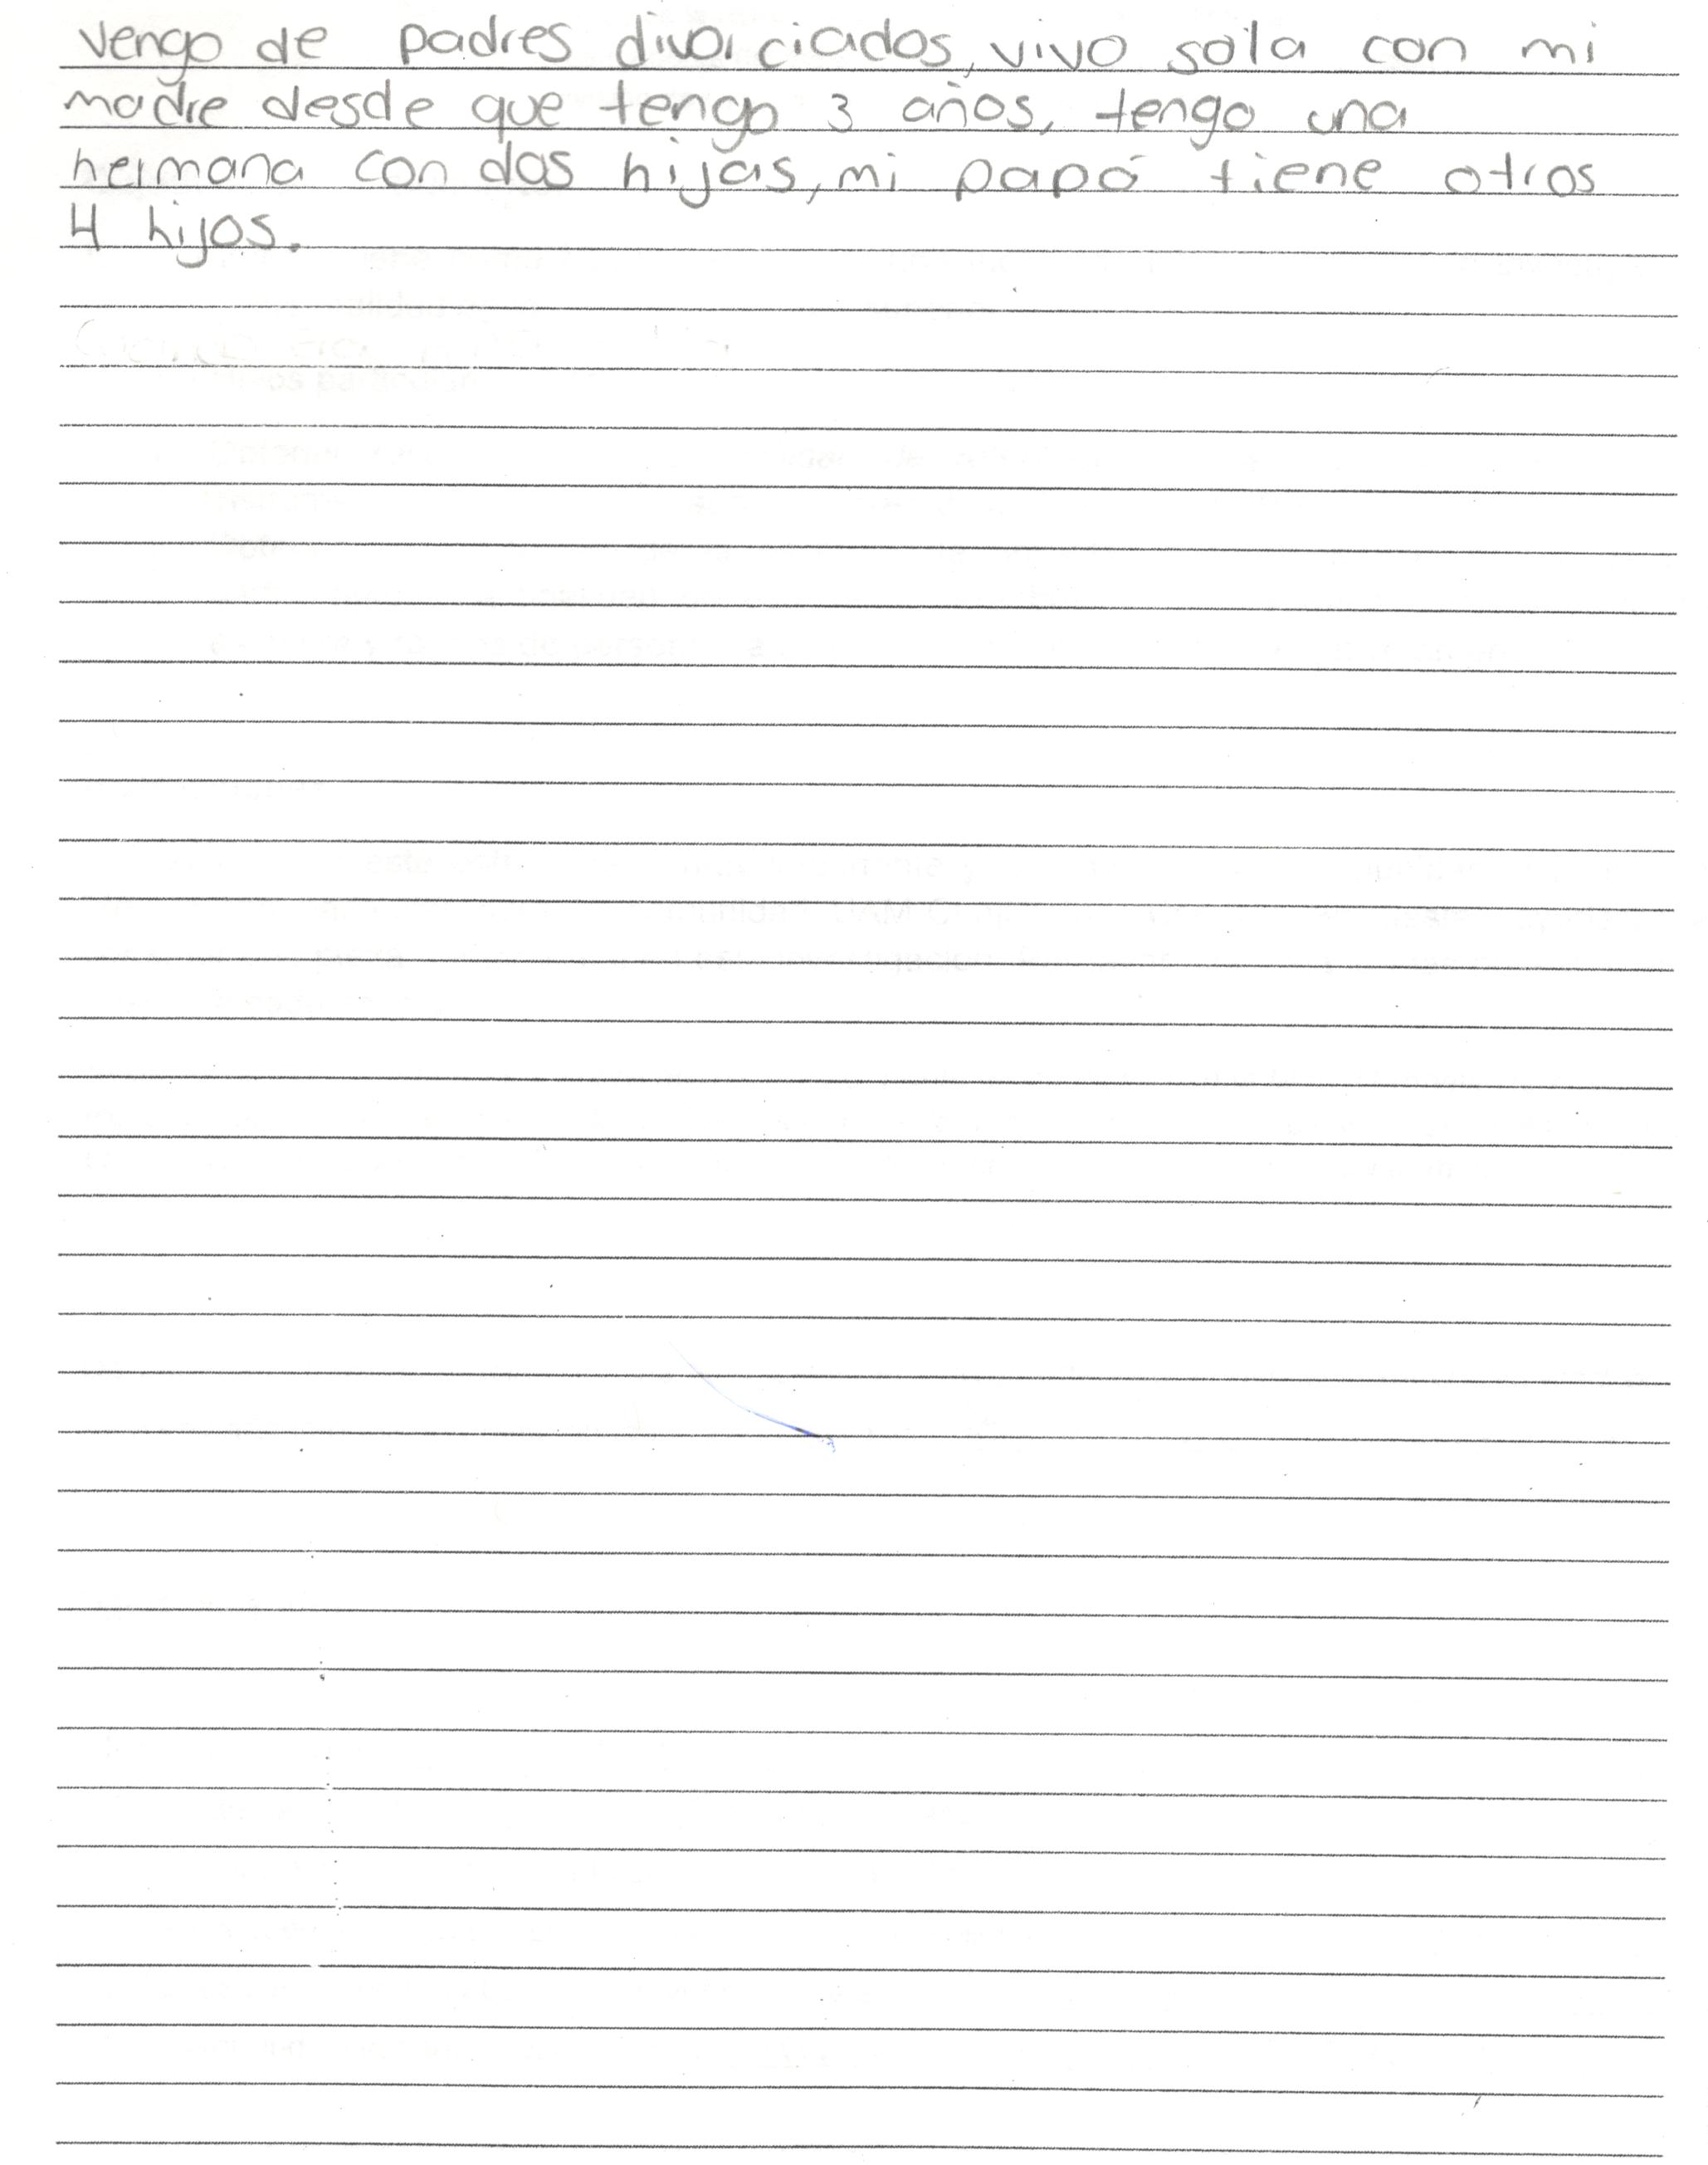 Vengo de padres divorciados, vivo sola con mi
madre desde que tengo 3 años, tengo una
hermana con dos hijas, mi papá tiene otros
4 hijos.